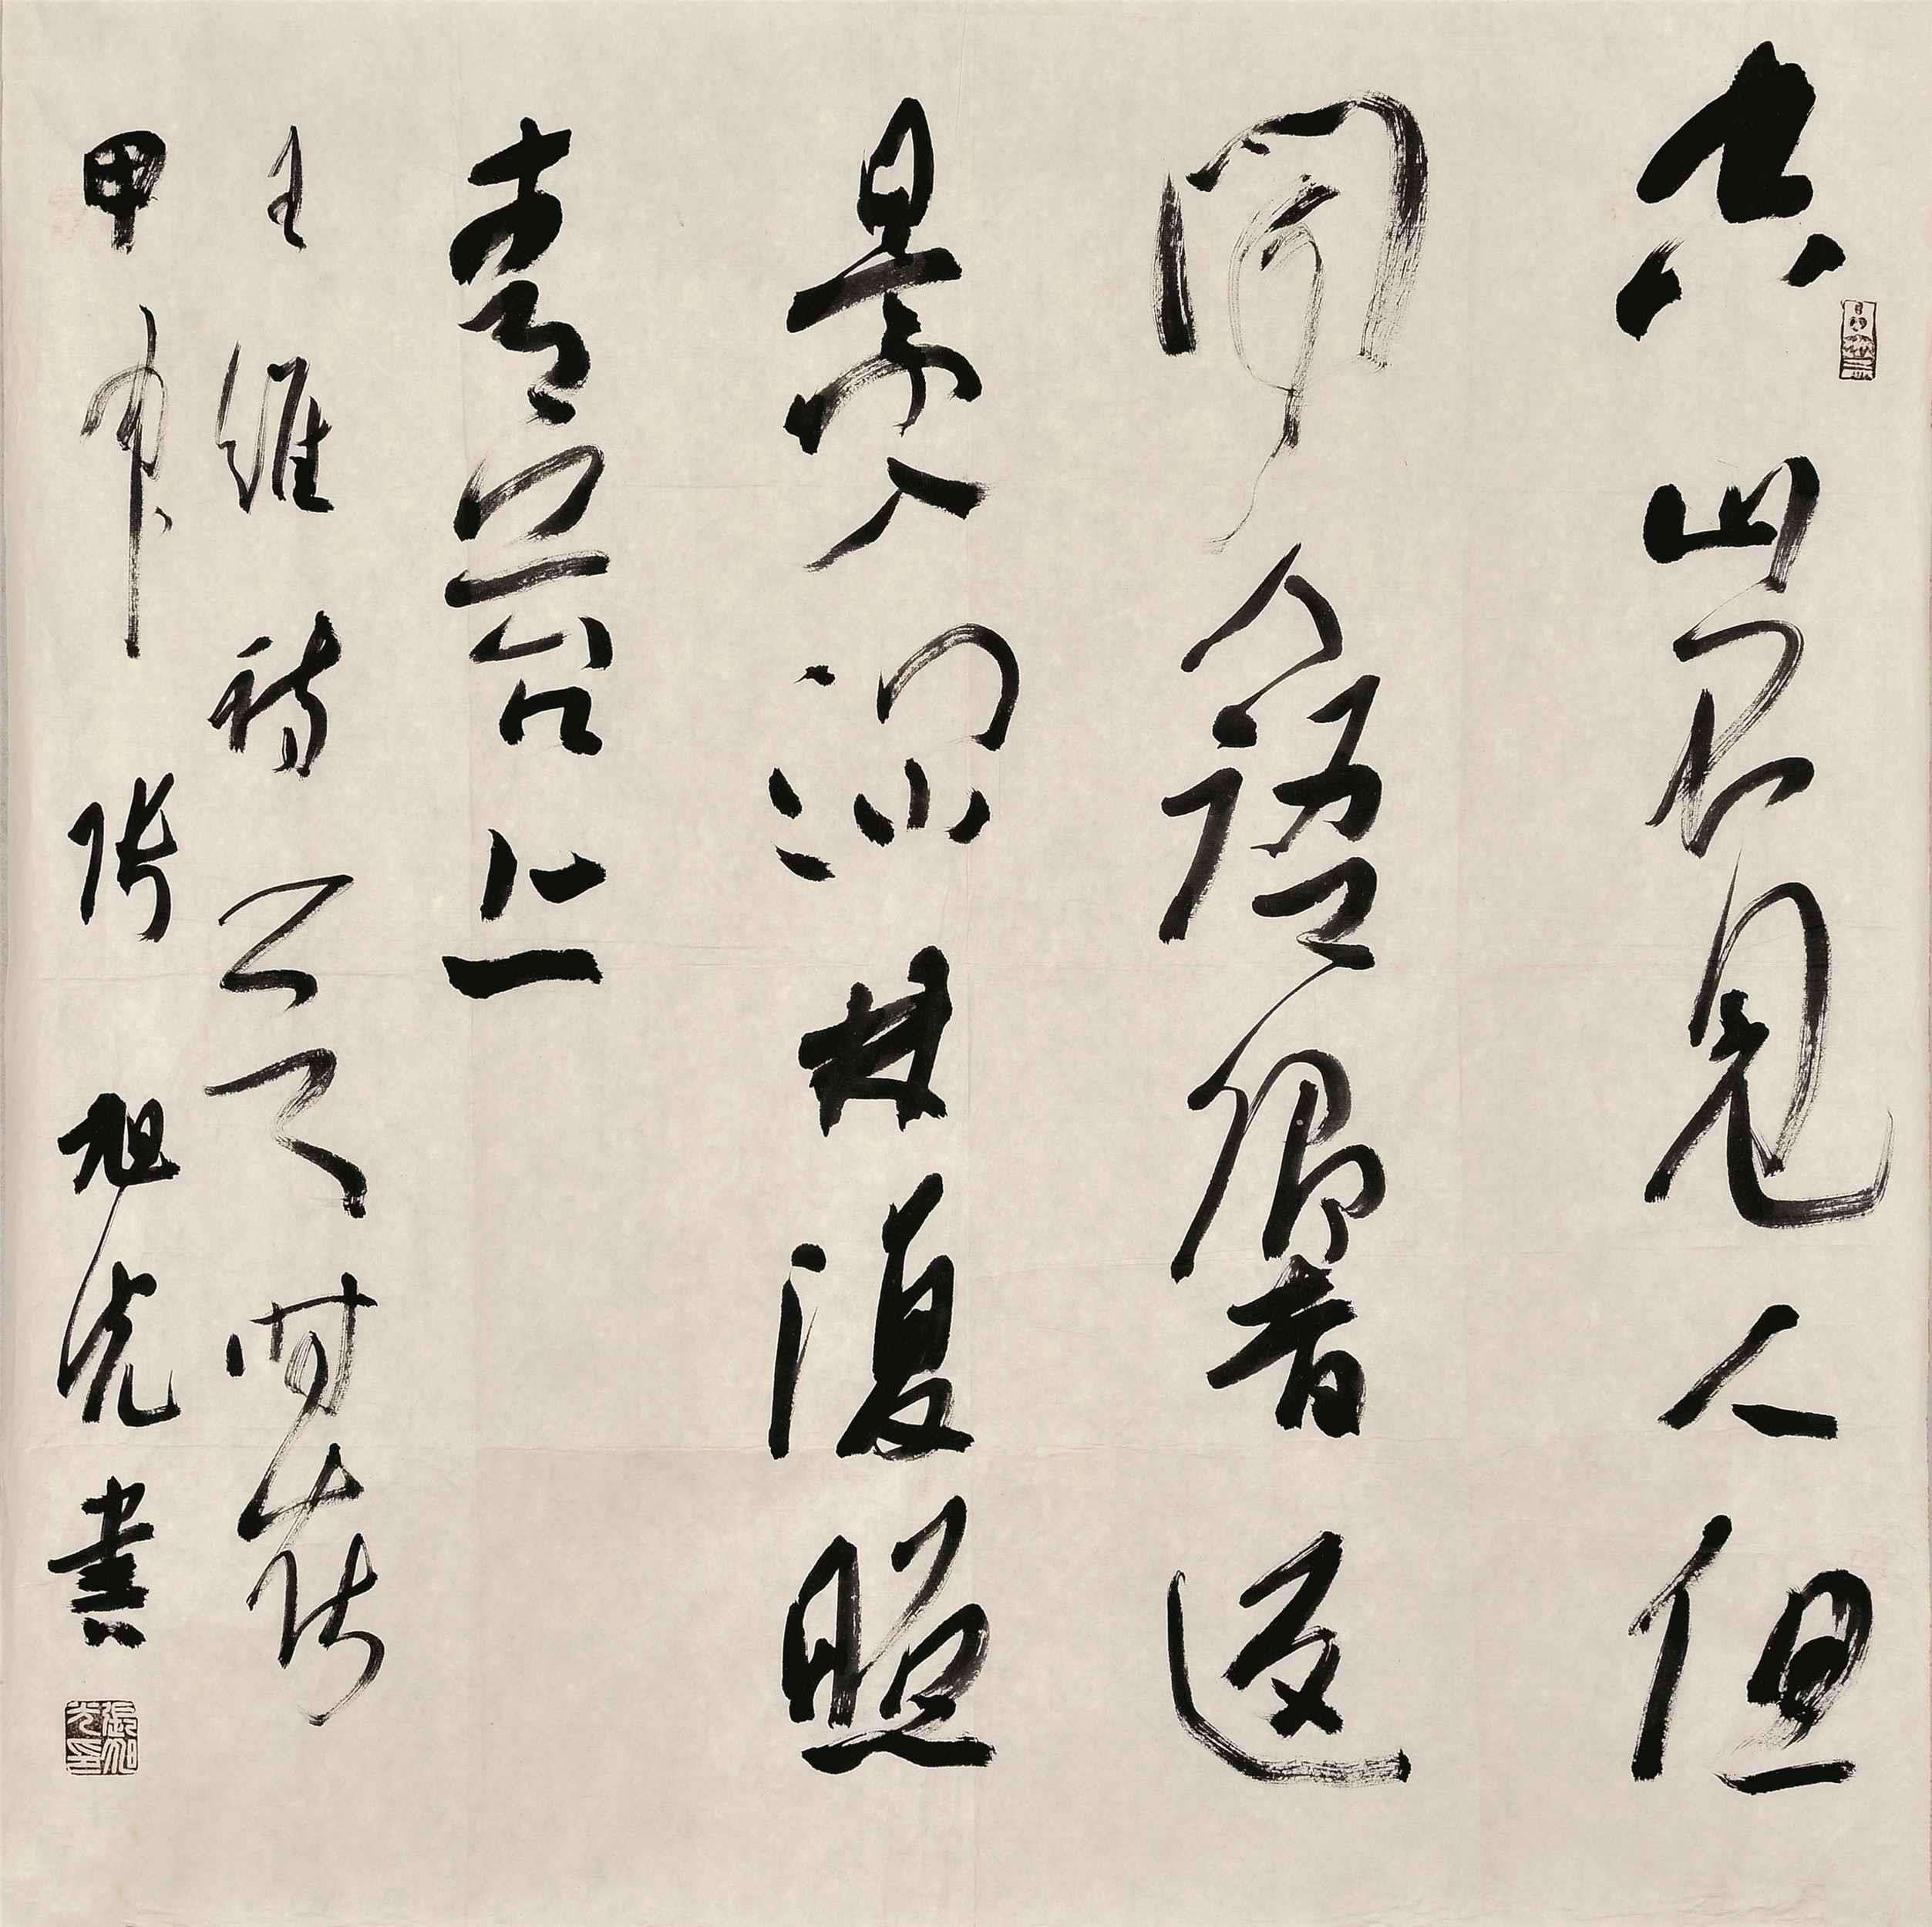 空山不見人但
聞人語響返
景入深林復照
青苔上
王維詩
甲申 張旭光書
張旭光印